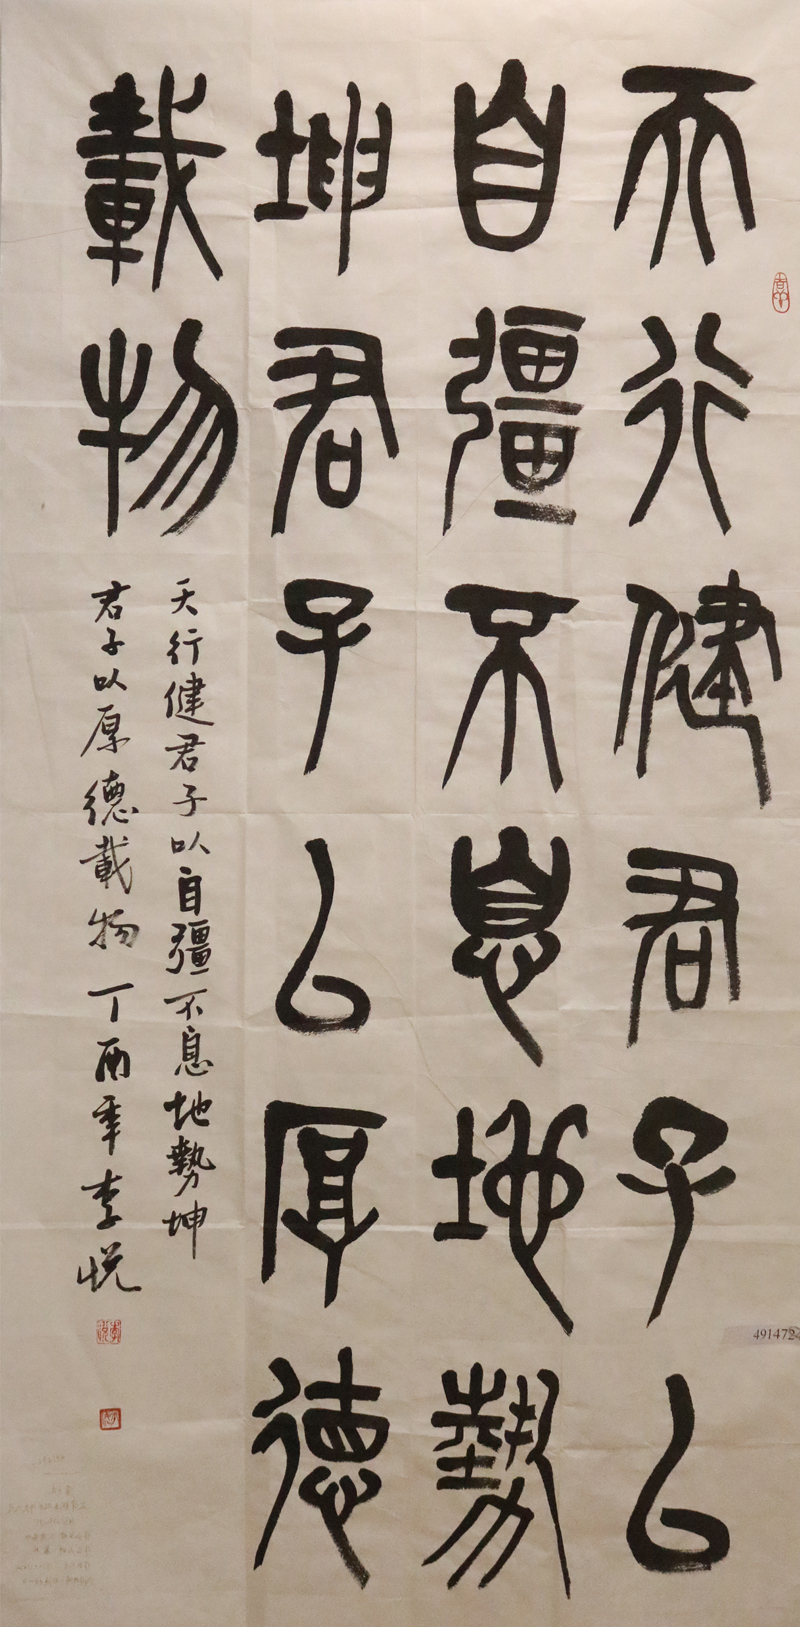 天行健君子以
自彊不息地勢
坤君子以厚德
載物
天行健君子以自彊不息地勢坤
君子以厚德載物丁酉年李悅
491472